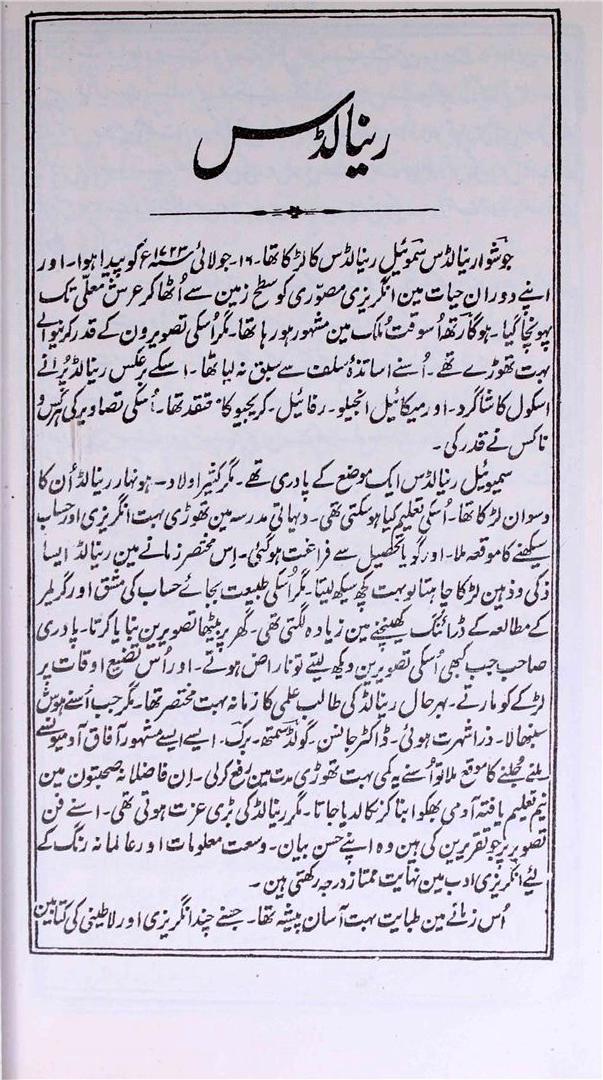 رینالڈس
جوشوا رینالڈس سموئیل رینالڈس کا لڑکا تھا۔ ۱۶۔ جولائی ۱۷۲۳ء کو پیدا ہوا۔ اور
اپنے دوران حیات مین انگریزی مصوّری کو سطح زمین سے اُٹھا کر عرش معلّٰی تک
پہونچا گیا۔ ہوگارتھ اُسوقت مُلک مین مشہور ہو رہا تھا۔ مگر اُسکی تصویرون کے قدر کرنیوالے
بہت تھوڑے تھے۔ اُسنے اساتذۂ سلف سے سبق نہ لیا تھا۔ اسکے برعکس رینالڈ پُرانے
اسکول کا شاگرد۔ اور میکائیل انجیلو۔ رفائیل۔ کریجیو کا متقد تھا۔ اُسکی تصاویر کی ہرکس و
ناکس نے قدر کی۔
سمیوئیل رینالڈس ایک موضع کے پادری تھے۔ مگر کثیر اولاد۔ ہونہار رینالڈ اُن کا
دسوان لڑکا تھا۔ اُسکی تعلیم کیا ہو سکتی تھی۔ دیہاتی مدرسہ مین تھوڑی بہت انگریزی اور حساب
سیکھنے کا موقعہ ملا۔ اور گویا تحصیل سے فراغت ہوگئی۔ اِس مختصر زمانے مین رینالڈ ایسا
ذکی و ذہین لڑکا چاہتا تو بہت کچھ سیکھ لیتا۔ مگر اُسکی طبیعت بجائے حساب کی مشق اور گریمر
کے مطالعہ کے ڈرائنگ کھینچنے مین زیادہ لگتی تھی۔ گھر پر بیٹھا تصویرین بنایا کرتا۔ پادری
صاحب جب کبھی اُسکی تصویرین دیکھ لیتے تو ناراض ہوتے۔ اور اُس تضیع اوقات پر
لڑکے کو مارتے۔ بہرحال رینالڈ کی طالب علمی کا زمانہ بہت مختصر تھا۔ مگر جب اُسنے ہوش
سنبھالا۔ ذرا شہرت ہوئی۔ ڈاکٹر جانسن۔ گولڈ سمتھ۔ برک۔ ایسے ایسے مشہور آفاق آدمیونسے
ملنے جُلنے کا موقع ملا تو اُسنے یہ کمی بہت تھوڑی مدت مین رفع کرلی۔ اِن فاضلانہ صحبتون مین
نیم تعلیم یافتہ آدمی بھکوا بنا کر نکالدیا جاتا۔ مگر رینالڈ کی بڑی عزت ہوتی تھی۔ اسنے فن
تصویر پر جو تقریرین کی ہین وہ اپنے حسن بیان۔ وسعت معلومات اور عالمانہ رنگ کے
لیٔے انگریزی ادب مین نہایت ممتاز درجہ رکھتی ہین۔
اُس زمانے مین طبابت بہت آسان پیشہ تھا۔ جسنے چند انگریزی اور لاطینی کی کتابین